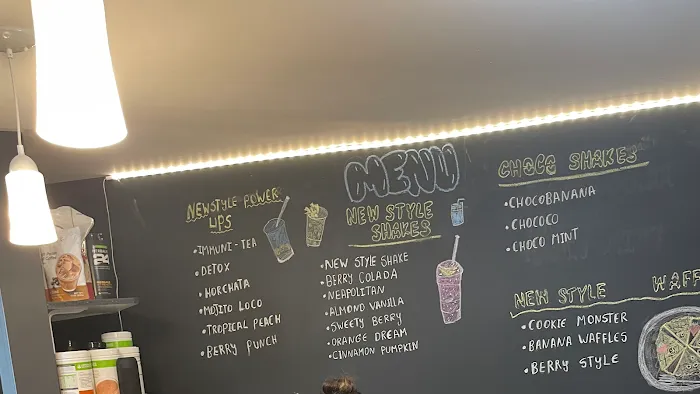 MENU
NEWSTYLE POWER
UPS
•IMMUNI-TEA
•DETOX
•HORCHATA
•MOJITO LOCO
•TROPICAL PEACH
•BERRY PUNCH
NEW STYLE
SHAKES
•NEW STYLE SHAKE
•BERRY COLADA
•NEAPOLITAN
•ALMOND VANILLA
•SWEETY BERRY
•ORANGE DREAM
•CINNAMON PUMPKIN
CHOCO SHAKES
•CHOCOBANANA
•CHOCOCO
•CHOCO MINT
NEW STYLE WAFF
•COOKIE MONSTER
•BANANA WAFFLES
•BERRY STYLE
24